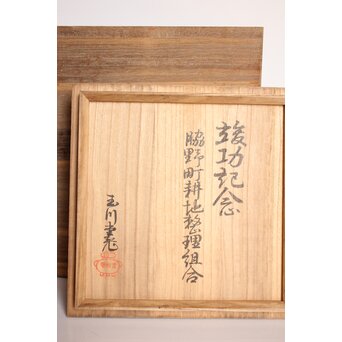 竣功記念
脇野町耕地整理組合
玉川堂